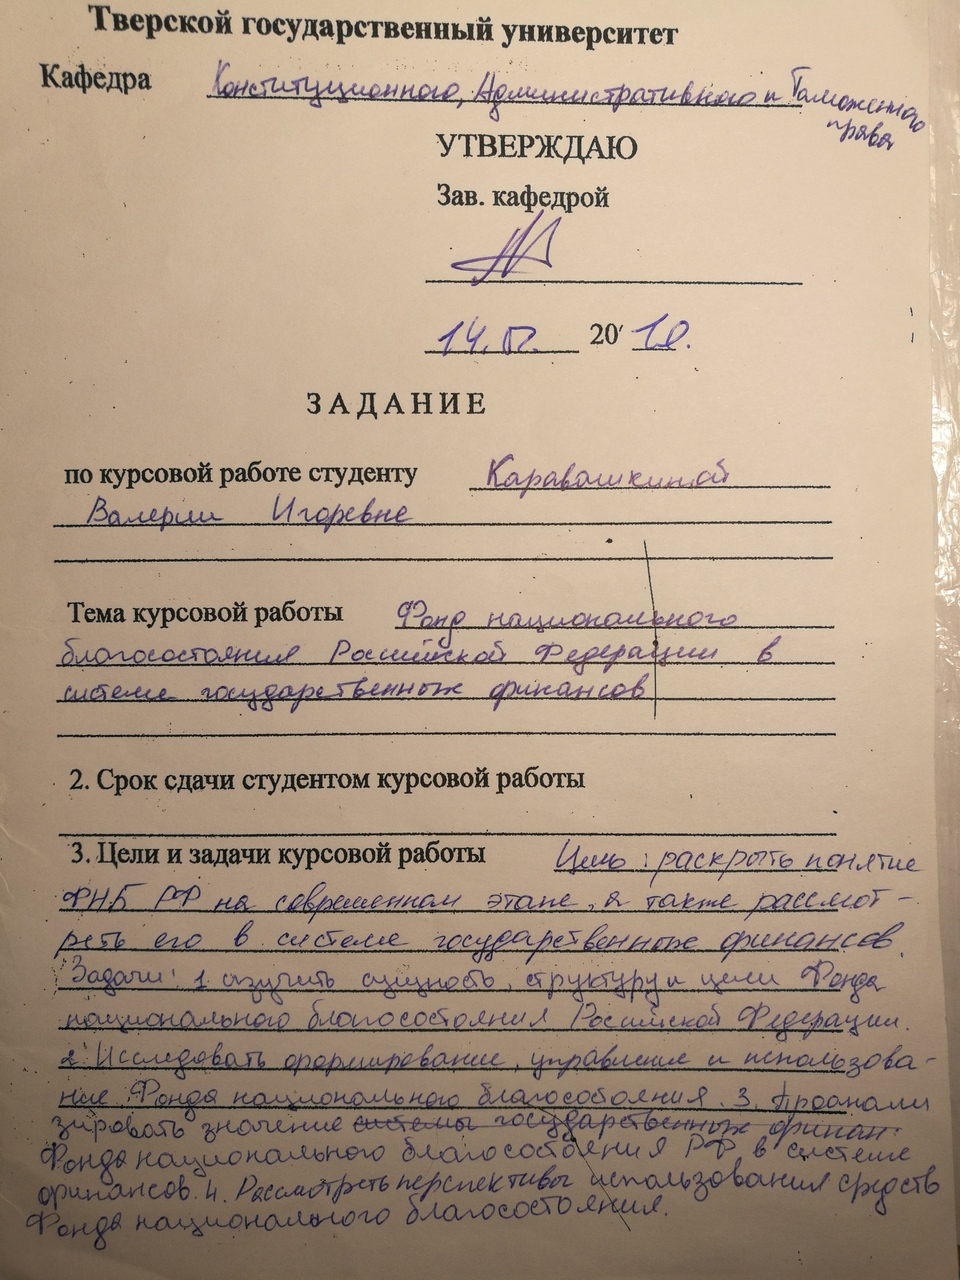 Тверской государственный университет
Кафедра Конституционного, Административного и Таможенного
права
УТВЕРЖДАЮ
Зав. кафедрой
14. 20
ЗАДАНИЕ
по курсовой работе студенту Каравашкиной
Валерии Игоревне
Тема курсовой работы Фонд национального
благосостояния Российской Федерации в
системе государственных финансов
2. Срок сдачи студентом курсовой работы
3. Цели и задачи курсовой работы Цель: раскрыть понятие
ФНБ РФ на современном этапе, а также рассмот-
реть его в системе государственных финансов.
Задачи: 1. изучить сущность, структуру и цели Фонда
национального благосостояния Российской Федерации.
2. Исследовать формирование, управление и использова-
ние Фонда национального благосостояния. 3. Проанали
зировать значение системы государственных финан
Фонда национального благосостояния РФ в системе
финансов. 4. Рассмотреть перспективы использования средств
Фонда национального благосостояния.